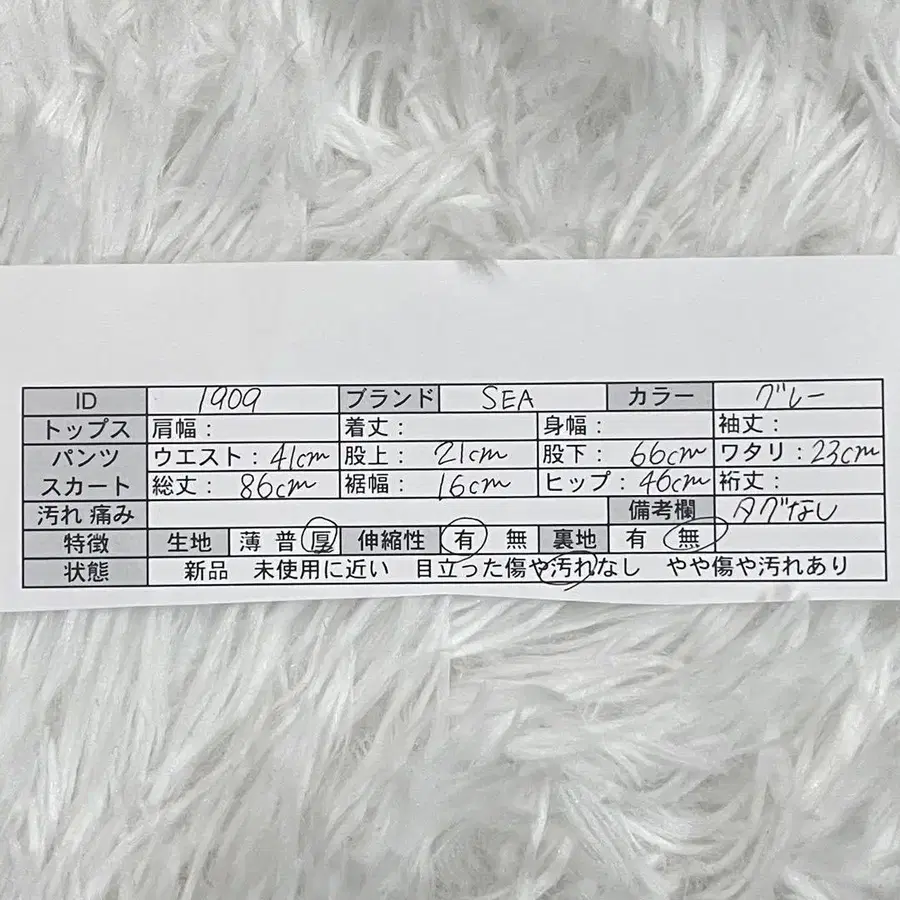 ID 1909 ブランド SEA カラー グレー
トップス 肩幅： 着丈： 身幅： 袖丈：
パンツ ウエスト：41cm 股上：21cm 股下：66cm ワタリ：23cm
スカート 総丈：86cm 裾幅：16cm ヒップ：46cm 裄丈：
汚れ 痛み 備考欄 タグなし
特徴 生地 薄 普 厚 伸縮性 有 無 裏地 有 無
状態 新品 未使用に近い 目立った傷や汚れなし やや傷や汚れあり